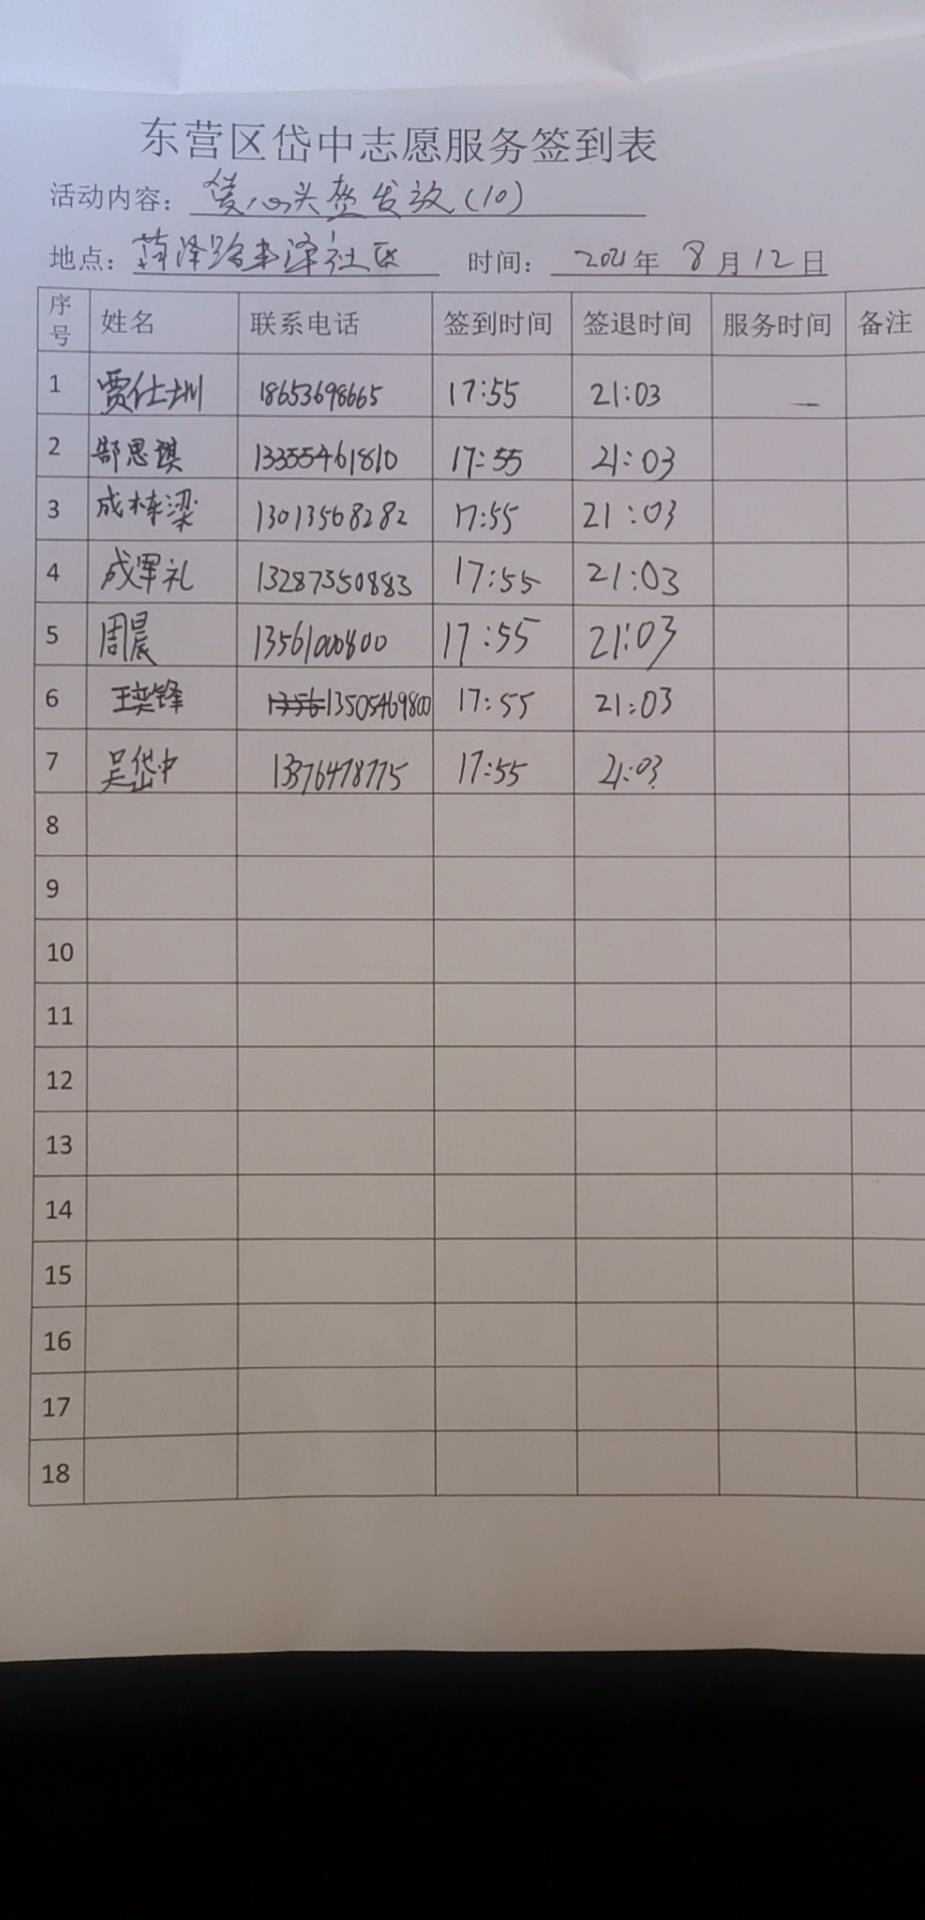 东营区岱中志愿服务签到表
活动内容: 爱心头盔发放(10)
地点: 菏泽路丰泽社区 时间: 2021年 8月12日
序号 姓名 联系电话 签到时间 签退时间 服务时间 备注
1 贾仕圳 18653698665 17:55 21:03 —
2 郜思琪 13355461810 17:55 21:03
3 成栋梁 13013568282 17:55 21:03
4 成军礼 13287350883 17:55 21:03
5 周晨 13561000800 17:55 21:03
6 王英锋 13505469800 17:55 21:03
7 吴岱中 17:55 21:03
8
9
10
11
12
13
14
15
16
17
18